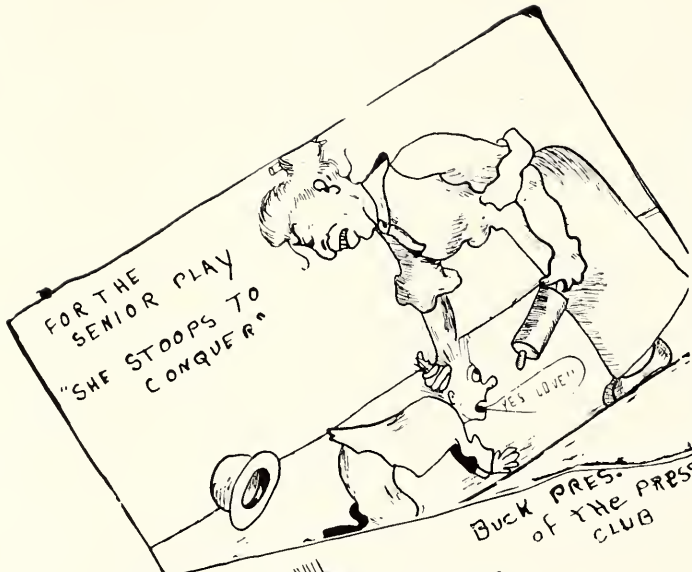 FOR THE
SENIOR PLAY
"SHE STOOPS TO
CONQUER"
YES LOVE"
BUCK PRES.
OF THE PRESS
CLUB